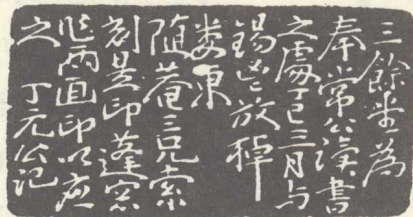 三餘堂為
奉常公讀書
之處丁巳三月与
錫鬯放棹
婁東
隨菴三兄索
刻是印蓬窓
作兩面印以應
之 丁元公記